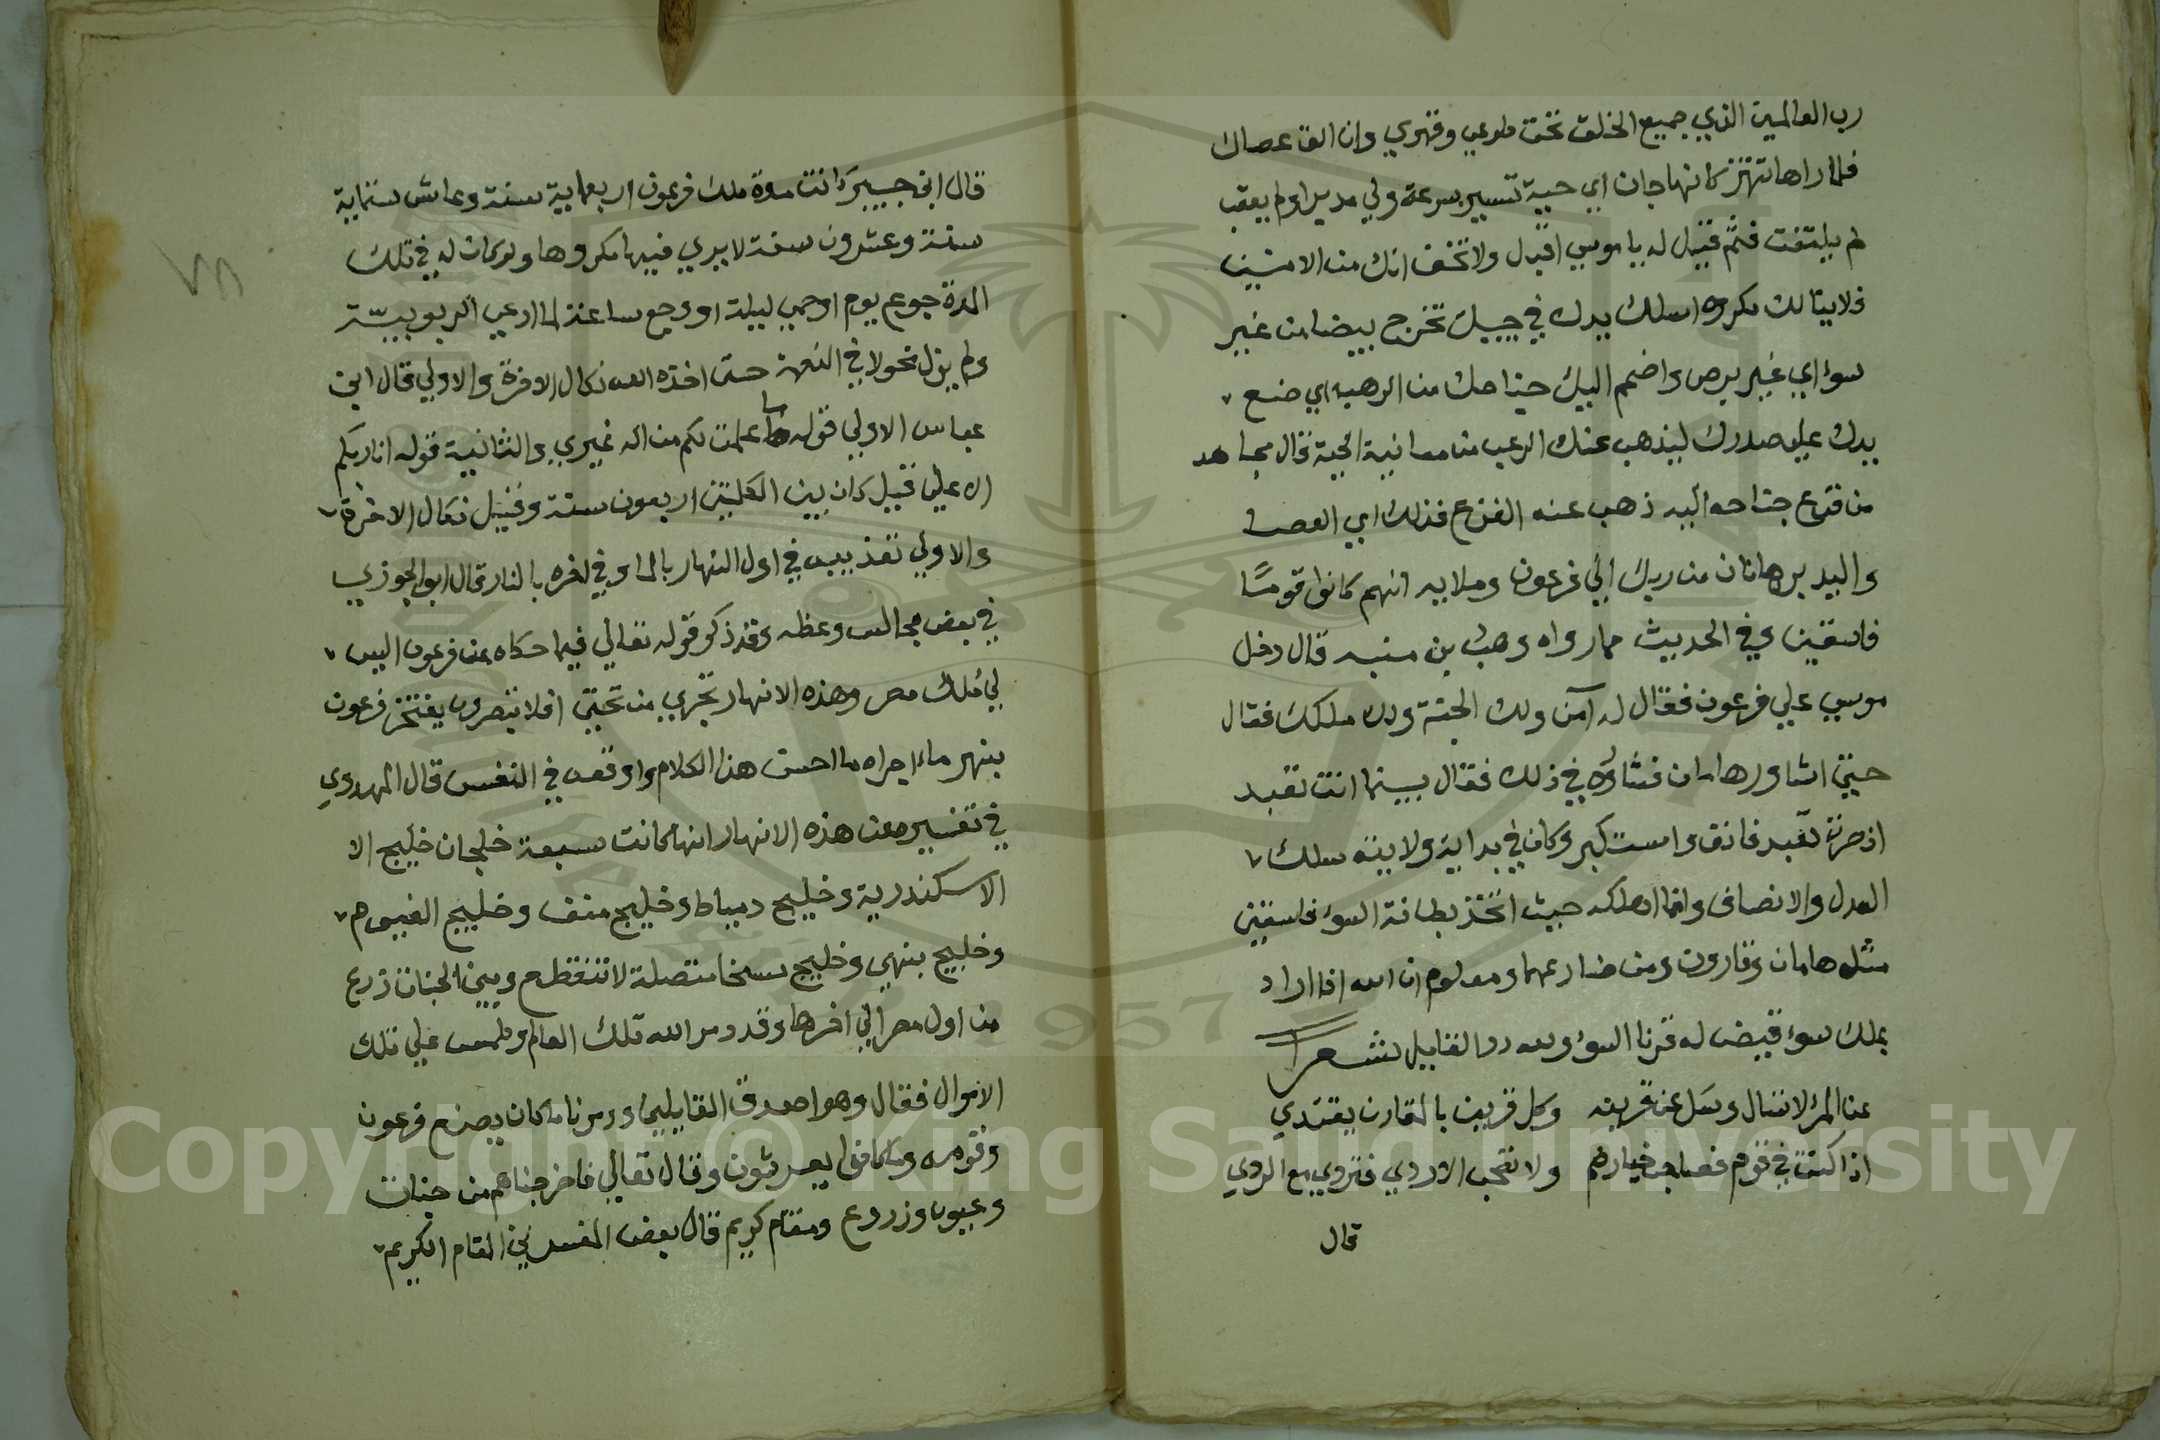 رب العالمين الذي جميع الخلق تحت طوعي وقهري وان الق عصاك
فلما راها تهتز كانها جان اي حية تسير بسرعة ولي مدبرا ولم يعقب
لم يلتفت فثم قيل له يا موسي اقبل ولا تخف انك من الامنين
فلا ينالك مكروه اسلك يدك في جيبك تخرج بيضا من غير
سوء اي غير برص واضمم اليك جناحك من الرهب اي ضع
يدك علي صدرك ليذهب عنك الرعب من معانية الحية قال مجاهد
من فزع جناحه اليه ذهب عنه الفزع فذلك اي العصا
واليد برهانان من ربك الي فرعون وملايه انهم كانوا قوما
فاسقين وفي الحديث مما رواه وهب بن منبه قال دخل
موسي علي فرعون فقال له آمن ولك الجنة ولك ملكك فقال
حتي اشاور هامان فشاوره في ذلك فقال بينما انت تعبد
اذ صرت تعبد فانف واستكبر وكان في بداية ولايته سلك
العدل والانصاف وانما اهلكه حيث اتخذ بطانة السوء فاسقين
مثل هامان وقارون ومن ضارعهما ومعلوم ان الله اذا اراد
بملك سوء قيض له قرنا السوء ولله در القايل شعرا
عن المرء لا تسال وسل عن قرينه وكل قرين بالمقارن يقتدي
اذا كنت في قوم فصاحب خيارهم ولا تصحب الاردي فتردي مع الردي
قال
قال ابن جبير كانت مدة ملك فرعون اربعماية سنة وعاش ستماية
سنة وعشرون سنة لا يري فيها مكروها ولو كان له في تلك
المدة جوع يوم او حمي ليلة او وجع ساعة لما ادعي الربوبية
ولم يزل مخولا في النعمة حتي اخذه الله نكال الاخرة والاولي قال ابن
عباس الاولي قوله ما علمت لكم من اله غيري والثانية قوله انا ربكم
الاعلي قيل كان بين الكلمتين اربعون سنة وقيل نكال الاخرة
والاولي تعذيبه في اول النهار بالما وفي اخره بالنار قال ابو الجوزي
في بعض مجالس وعظه وقد ذكر قوله تعالي فيما حكاه عن فرعون اليس
لي ملك مصر وهذه الانهار تجري من تحتي افلا تبصرون يفتخر فرعون
بنهر ماء اجراه ما احسن هذا الكلام واوقعه في النفس قال المهدوي
في تفسيره عن هذه الانهار انها كانت سبعة خلجان خليج الا
الاسكندرية وخليج دمياط وخليج منف وخليج الفيوم
وخليج بنهي وخليج سخا متصلة لا تنقطع وبين الجنات زرع
من اول مصر الي اخرها وقد دمر الله تلك العالم وطمس علي تلك
الاموال فقال وهو اصدق القايلين ودمرنا ما كان يصنع فرعون
وقومه وما كانوا يعرشون وقال تعالي فاخرجناهم من جنات
وعيون وزروع ومقام كريم قال بعض المفسرين المقام الكريم
٧٨
Copyright © King Saud University
1957